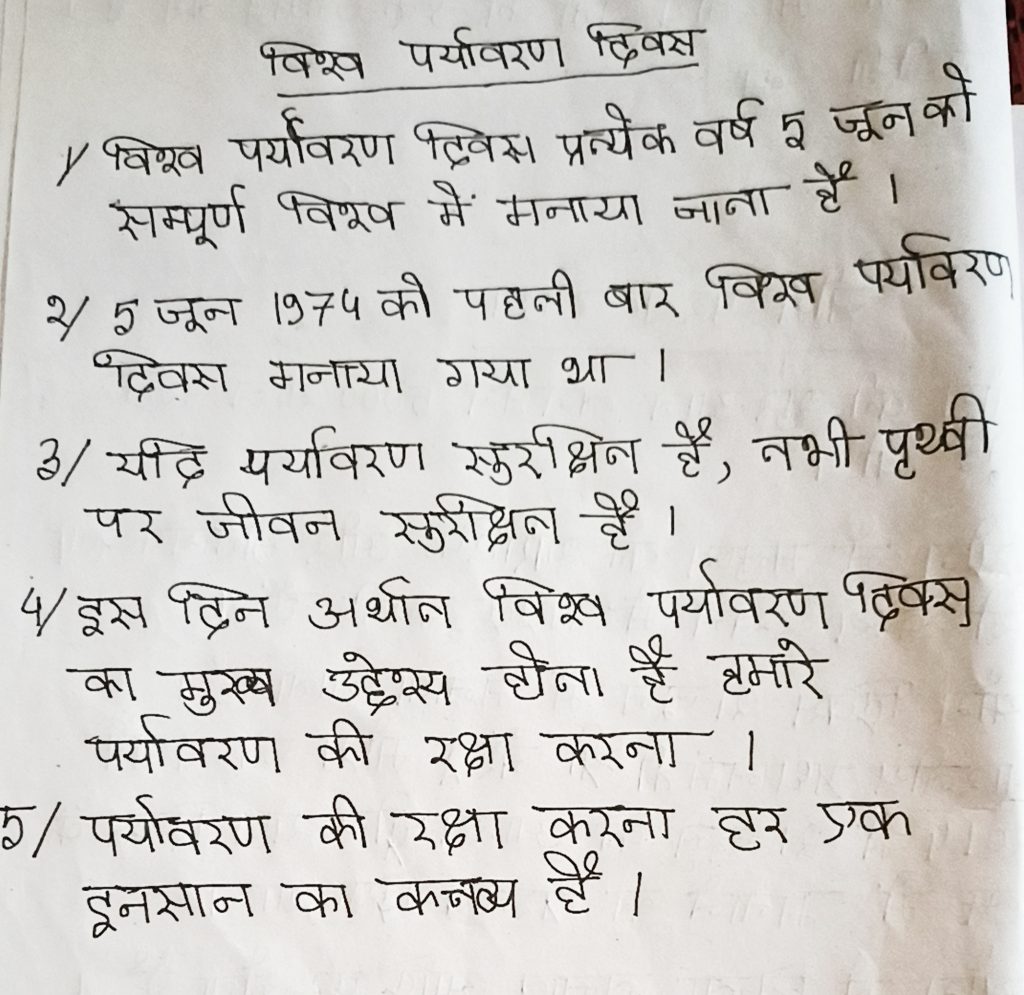 विश्व पर्यावरण दिवस
1/ विश्व पर्यावरण दिवस प्रत्येक वर्ष 5 जून को
सम्पूर्ण विश्व में मनाया जाता है ।
2/ 5 जून 1974 को पहली बार विश्व पर्यावरण
दिवस मनाया गया था ।
3/ यदि पर्यावरण सुरक्षित है, तभी पृथ्वी
पर जीवन सुरक्षित है ।
4/ इस दिन अर्थात विश्व पर्यावरण दिवस
का मुख्य उद्देश्य होता है हमारे
पर्यावरण की रक्षा करना ।
5/ पर्यावरण की रक्षा करना हर एक
इनसान का कर्त्तव्य है ।